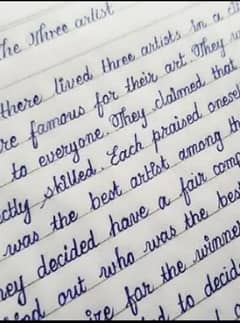 The Three artist
there lived three artists in a
re famous for their art. They
to everyone. They claimed that
ctly skilled. Each praised onesel
was the best artist among th
hey decided have a fair comp
nd out who was the bes
ire for the winne
d to decid